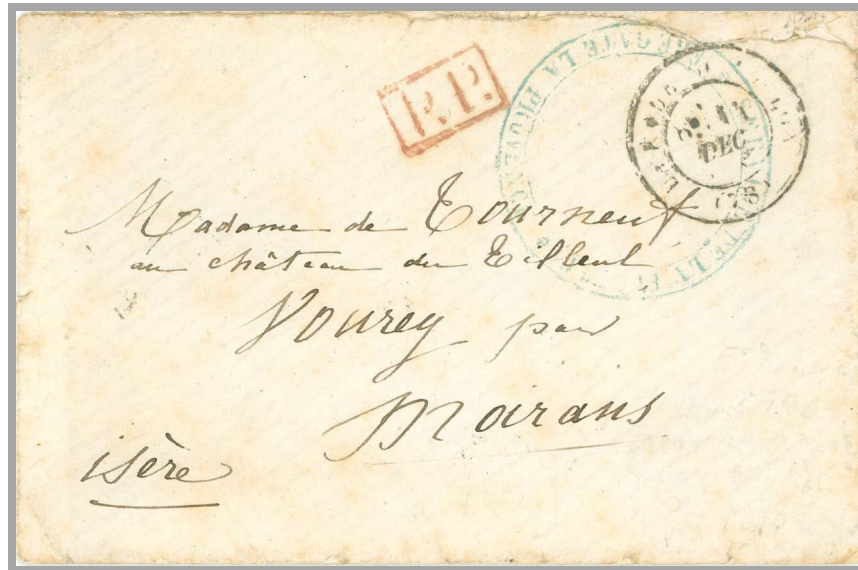 P.P.
FREGATE LA PROVEN
DE LA
DEC
(78)
Madame de Tourneuf
au château du Tilleul
Vourey par
Moirans
isère